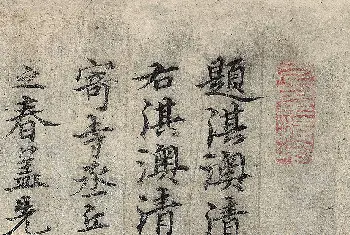 題淇澳清
右淇澳清
寄寺丞丘
之春蓋先